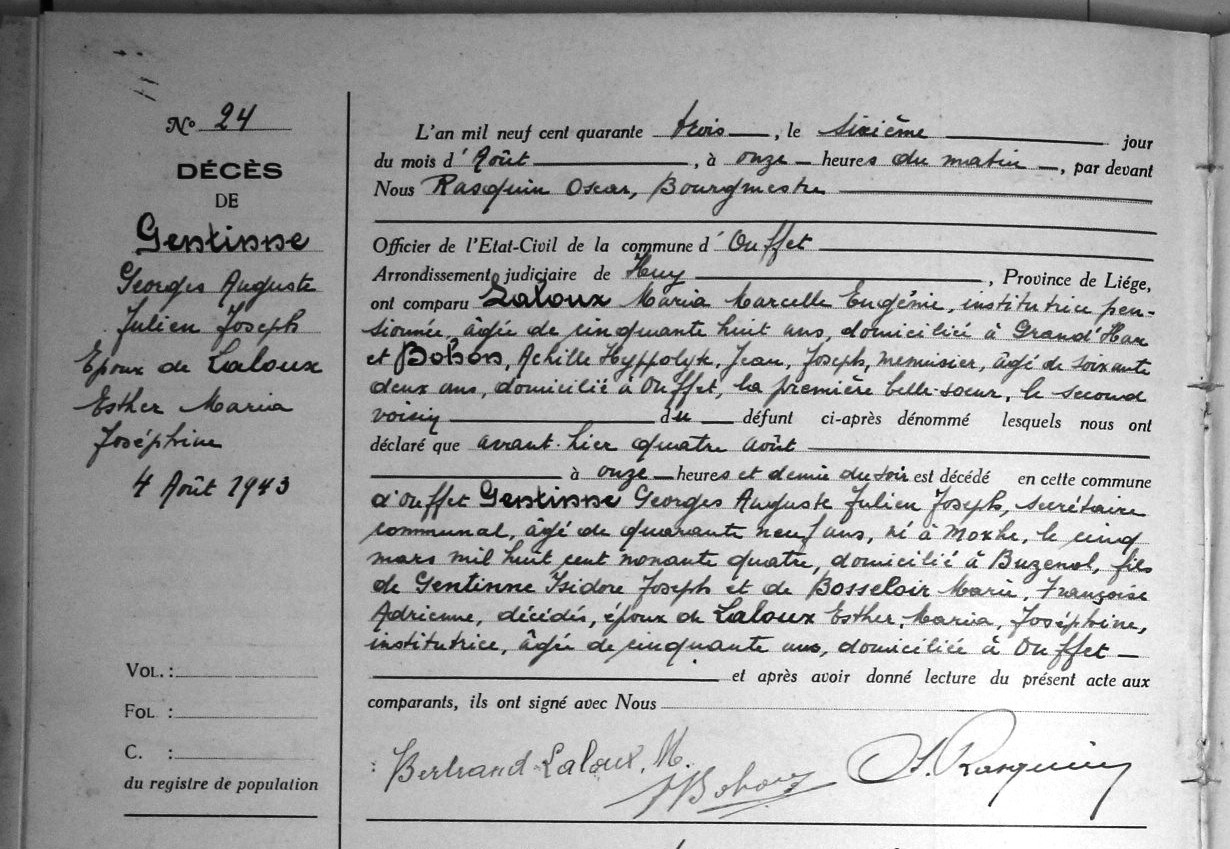 N° 24
DÉCÈS
DE
Gentinne
Georges Auguste
Julien Joseph
Epoux de Laloux
Esther Maria
Joséphine
4 Août 1943
VOL. :
FOL :
C. :
du registre de population
L'an mil neuf cent quarante trois, le sixième jour
du mois d'Août, à onze heures du matin, par devant
Nous Rasquin Oscar, Bourgmestre
Officier de l'Etat-Civil de la commune d'Ouffet
Arrondissement judiciaire de Huy, Province de Liége,
ont comparu Laloux Maria Marcelle Eugénie, institutrice pen-
sionnée, âgée de cinquante huit ans, domiciliée à Grand'Hax
et Bohon, Achille Hyppolyte, Jean, Joseph, menuisier, âgé de soixante
deux ans, domicilié à Ouffet, la première belle-sœur, le second
voisin du défunt ci-après dénommé lesquels nous ont
déclaré que avant-hier quatre août
à onze heures et demie du soir est décédé en cette commune
d'Ouffet Gentinne Georges Auguste Julien Joseph, secrétaire
communal, âgé de quarante neuf ans, né à Moxhe, le cinq
mars mil huit cent nonante quatre, domicilié à Buzenol, fils
de Gentinne Isidore Joseph et de Bosseloir Marie, Françoise
Adrienne, décédés, époux de Laloux Esther, Maria, Joséphine,
institutrice, âgée de cinquante ans, domiciliée à Ouffet
et après avoir donné lecture du présent acte aux
comparants, ils ont signé avec Nous
Bertrand-Laloux, M.
Bohon
O. Rasquin